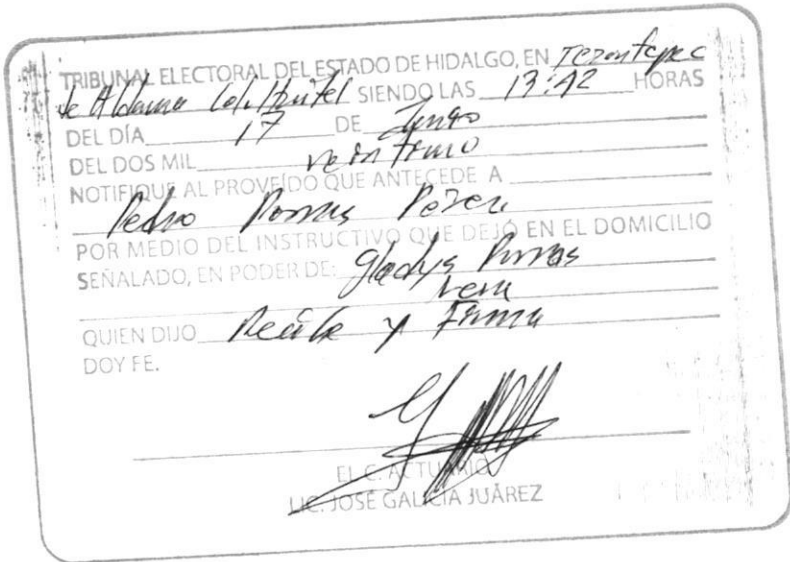 TRIBUNAL ELECTORAL DEL ESTADO DE HIDALGO, EN Tezontepec
de Aldama SIENDO LAS 13:42 HORAS
DEL DÍA 17 DE Junio
DEL DOS MIL veintiuno
NOTIFIQUE AL PROVEÍDO QUE ANTECEDE A
Pedro Porras Pérez
POR MEDIO DEL INSTRUCTIVO QUE DEJÓ EN EL DOMICILIO
SEÑALADO, EN PODER DE: Gladys Porras
QUIEN DIJO Recibe y Firma
DOY FE.
EL C. ACTUARIO
LIC. JOSÉ GALICIA JUÁREZ